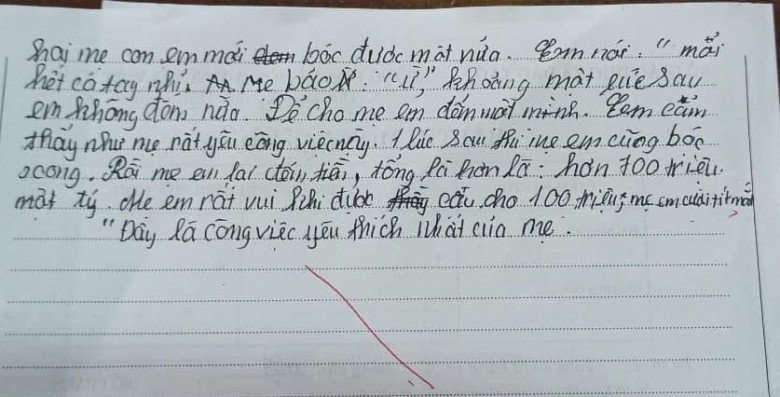 hai mẹ con em mới đem bóc được một nửa. Em nói: "mỏi
hết cả tay nhỉ, Mẹ bảo: "ừ," khoảng một lúc sau
em không đếm nữa. Để cho mẹ em đếm một mình. Em cảm
thấy như mẹ rất yêu công việc này. 1 lúc sau thì mẹ em cũng bóc
xong. Rồi mẹ em lại đếm tiền, tổng là hơn là: hơn 700 triệu.
một tý. Mẹ em rất vui khi được thầy cấu cho 100 triệu; mẹ em cười tít mắt
"Đây là công việc yêu thích nhất của mẹ.